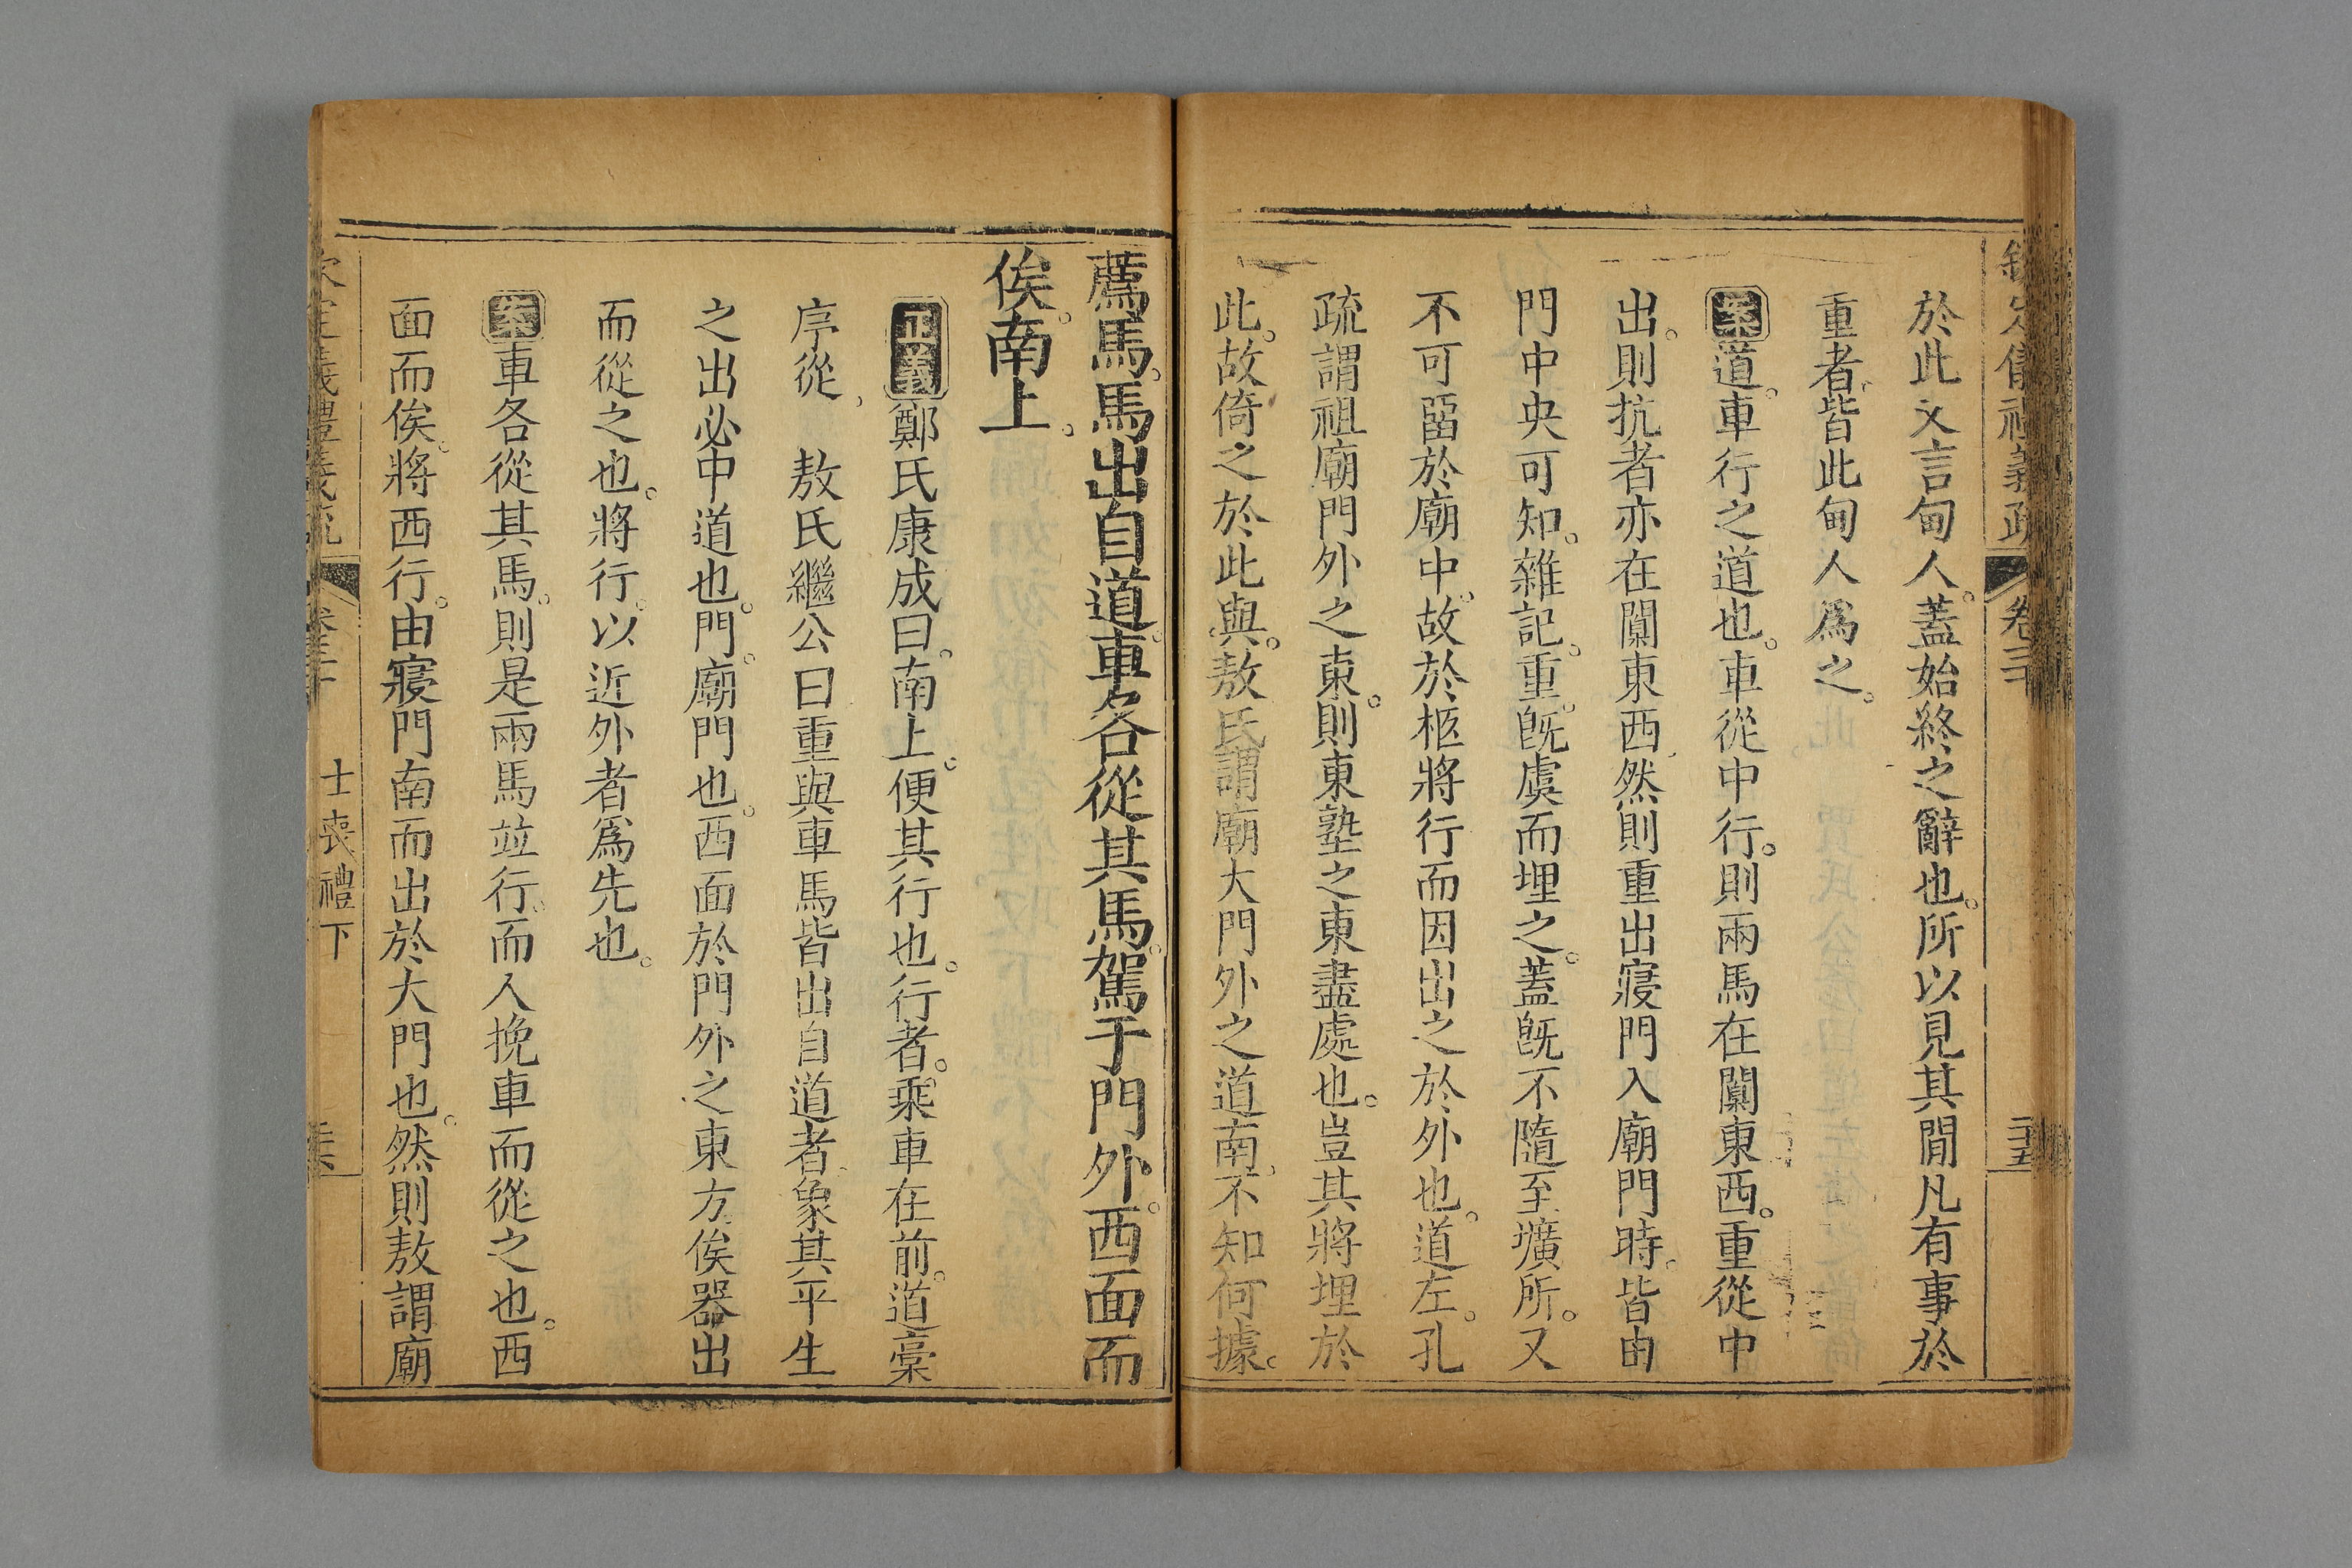 欽定儀禮義疏　卷三十　二十五
於此文言甸人。蓋始終之辭也。所以見其閒凡有事於
重者。皆此甸人爲之。
案道。車行之道也。車從中行。則兩馬在闑東西。重從中
出。則抗者亦在闑東西。然則重出寢門入廟門時。皆由
門中央可知。雜記。重旣虞而埋之。蓋旣不隨至壙所。又
不可畱於廟中。故於柩將行而因出之於外也。道左。孔
疏謂祖廟門外之東。則東塾之東盡處也。豈其將埋於
此。故倚之於此與。敖氏謂廟大門外之道南。不知何據。
薦馬。馬出自道。車各從其馬。駕于門外。西面而
俟。南上。
正義鄭氏康成曰。南上。便其行也。行者。乘車在前。道槀
序從　敖氏繼公曰重與車馬皆出自道者象其平生
之出必中道也。門。廟門也。西面於門外之東方俟器出
而從之也。將行。以近外者爲先也。
案車各從其馬。則是兩馬竝行。而人挽車而從之也。西
面而俟。將西行。由寢門南而出於大門也。然則敖謂廟
欽定儀禮義疏　卷三十　士喪禮下